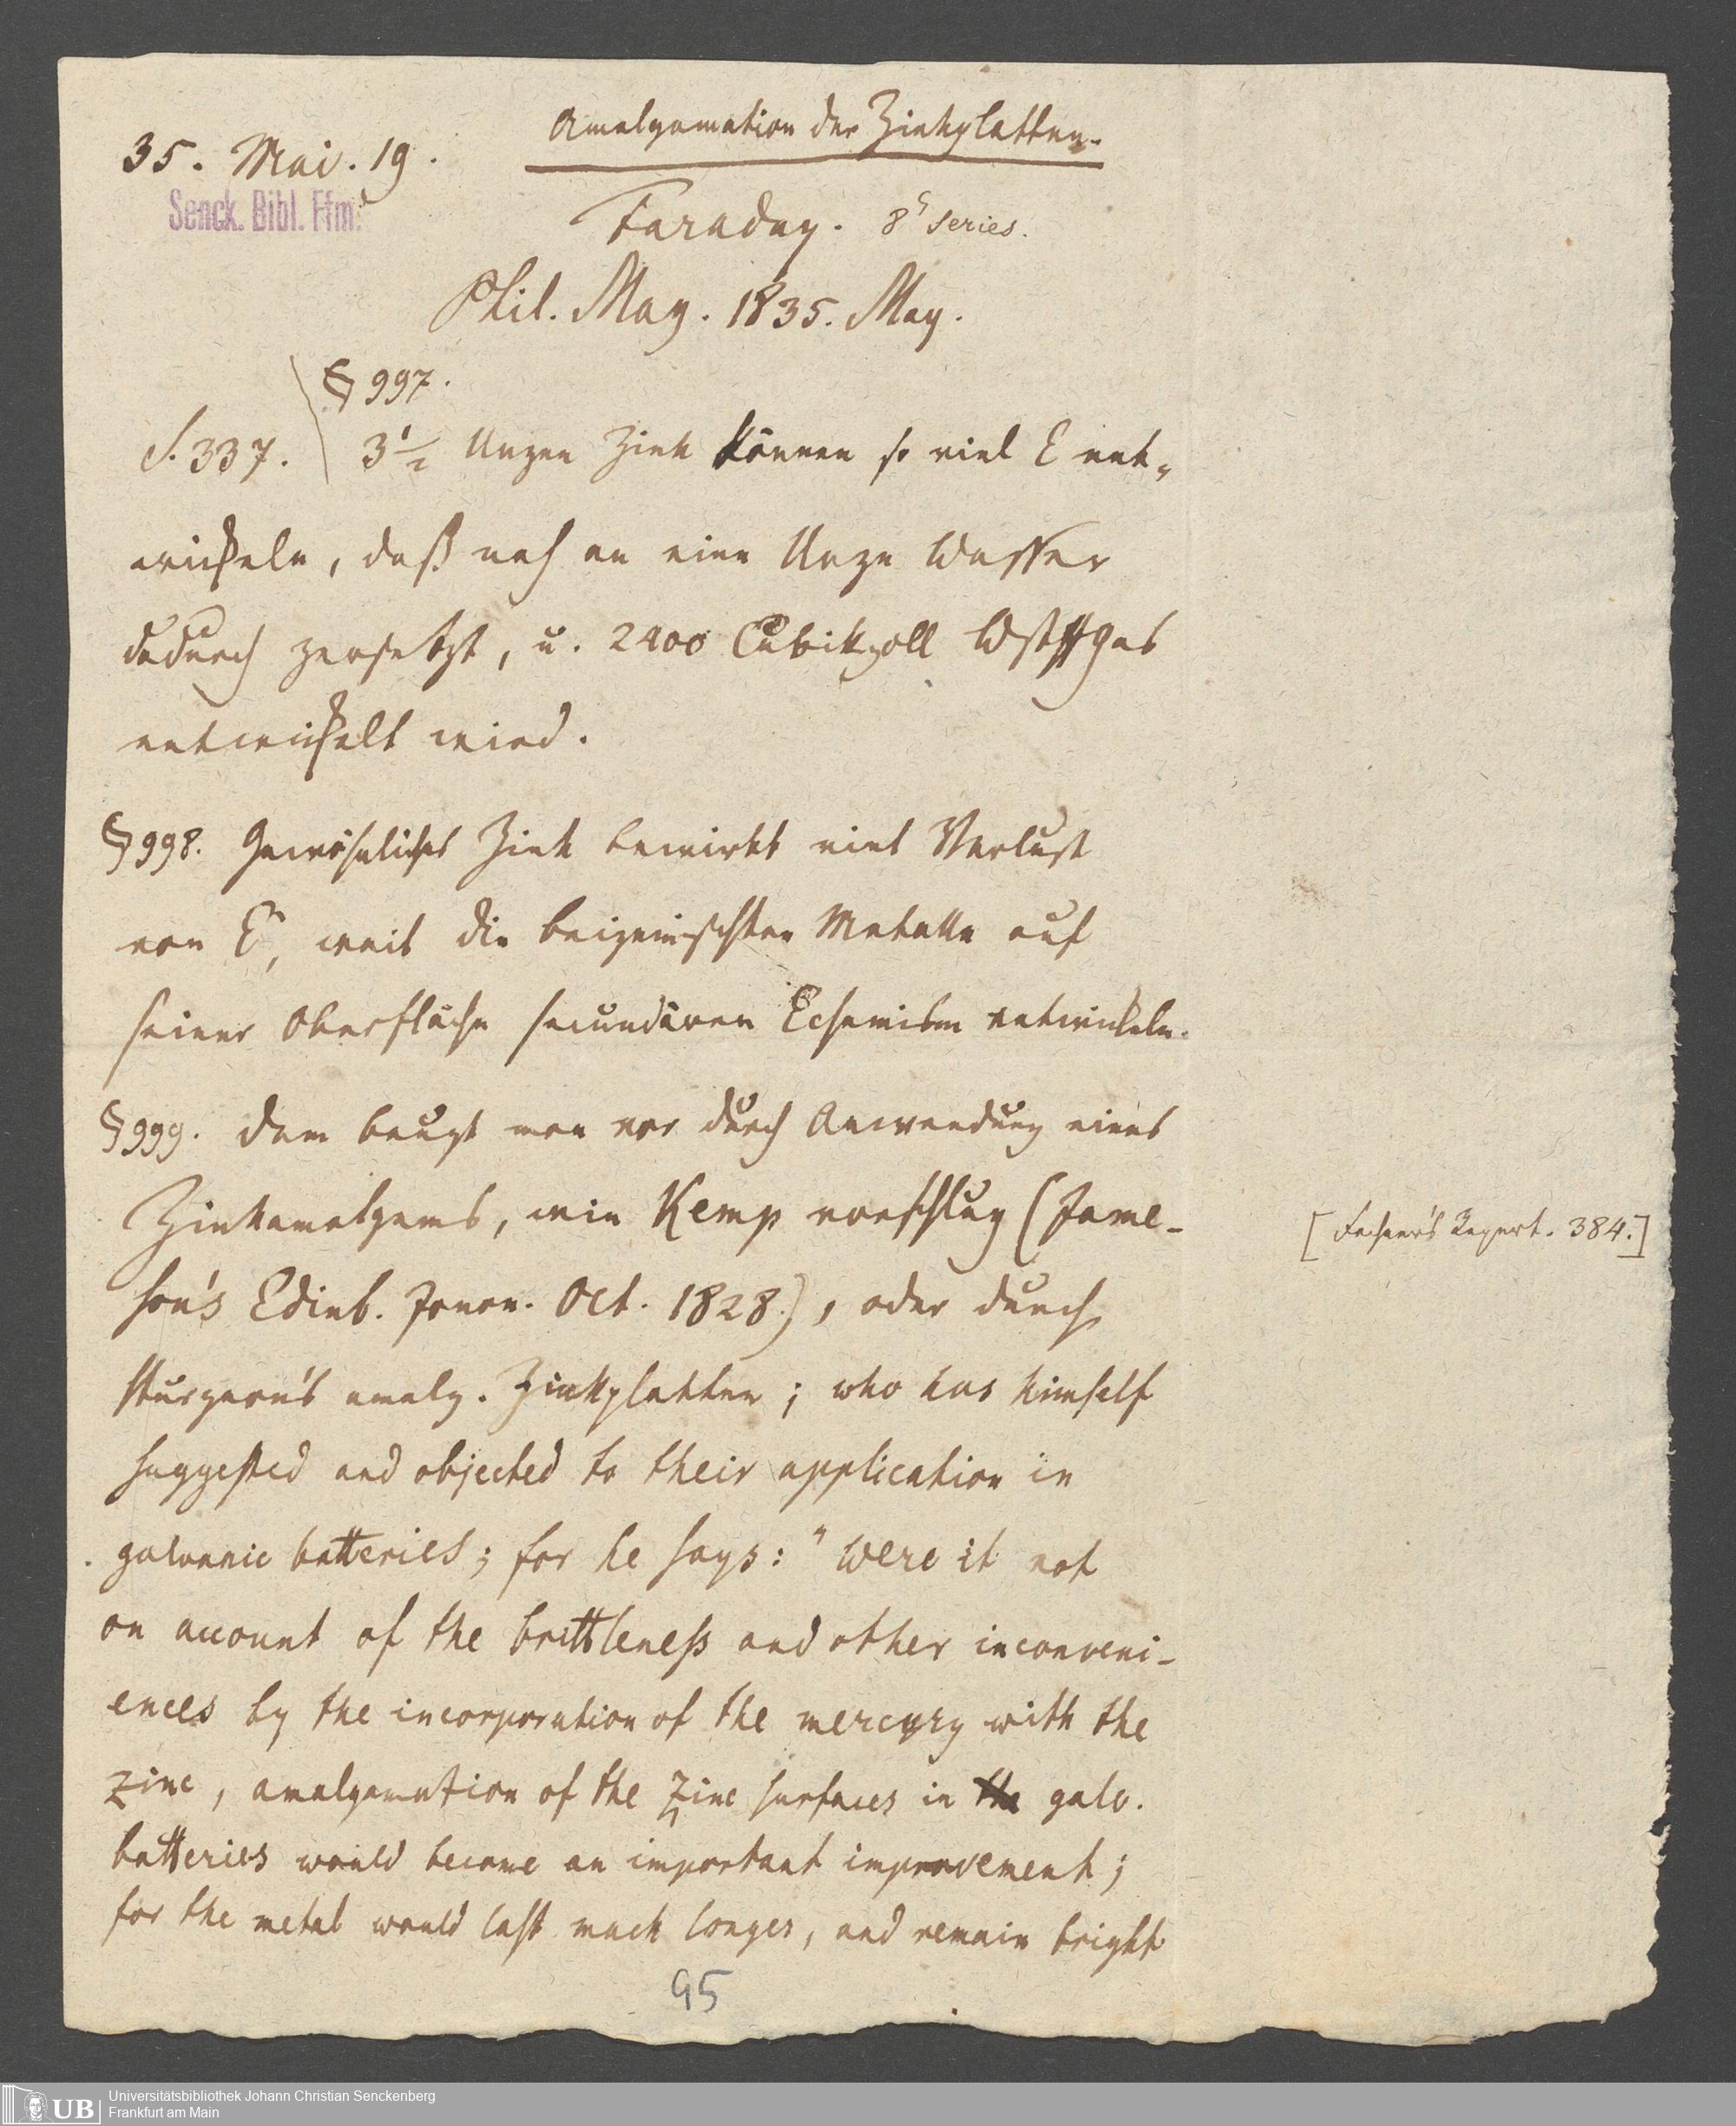 Amalgamation der Zinkplatten.
35. Mai. 19.
Senck. Bibl. Ffm.
Faraday. 8 Series.
Phil. Mag. 1835. May.
§ 997.
S. 337. 3½ Unzen Zink können so viel E ent-
wickeln, daß nah an eine Unze Wasser
dadurch zersetzt, u. 2400 Cubikzoll Wstffgas
entwickelt wird.
§ 998. Gewöhnliches Zink bewirkt viel Verlust
von E, weil die beigemischten Metalle auf
seiner Oberfläche secundären Echemism entwickeln.
§ 999. Dem beugt man vor durch Anwendung eines
Zinkamalgams, wie Kemp vorschlug (Jame-
[Fechner's Repert. 384.]
son's Edinb. Journ. Oct. 1828.), oder durch
Sturgeon's amalg. Zinkplatten; who has himself
suggested and objected to their application in
galvanic batteries; for he says: "Were it not
on account of the brittleness and other inconveni-
ences by the incorporation of the mercury with the
zinc, amalgamation of the Zinc surfaces in galv.
batteries would become an important improvement;
for the metal would last much longer, and remain bright
95
UB Universitätsbibliothek Johann Christian Senckenberg
Frankfurt am Main